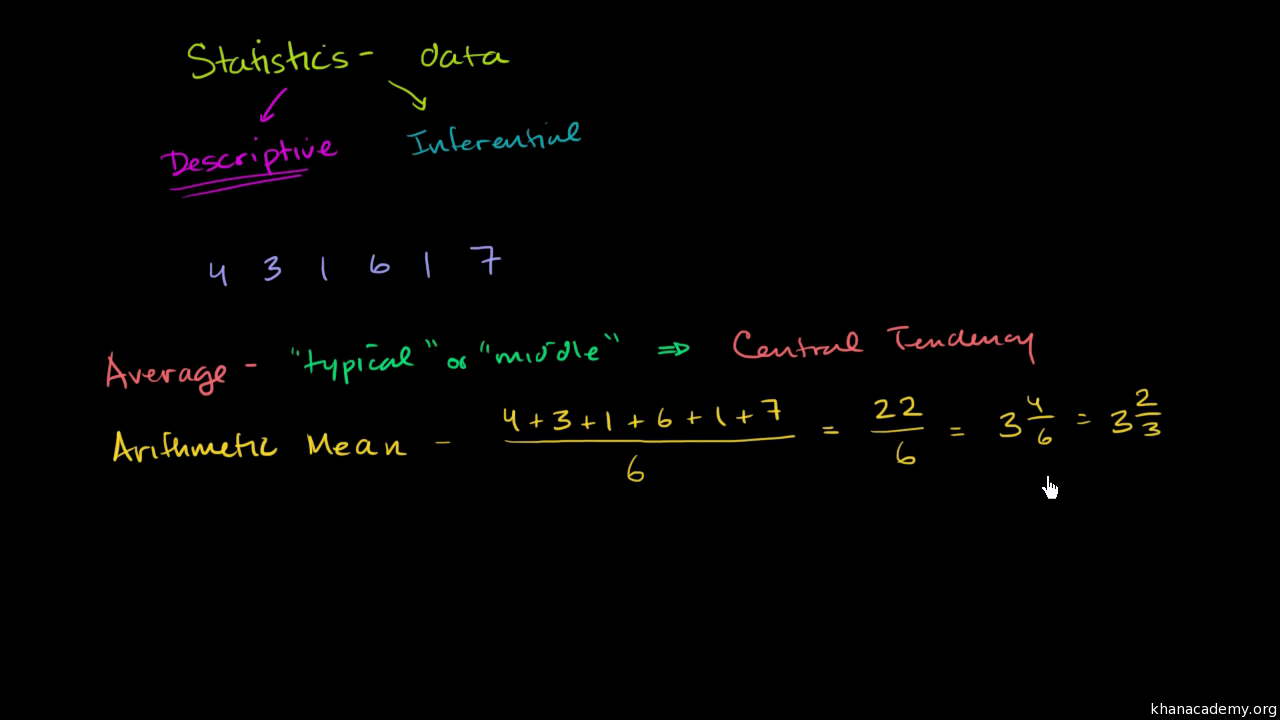 Statistics - data
Descriptive Inferential
4 3 1 6 1 7
Average - "typical" or "middle" ⇒ Central Tendency
Arithmetic Mean - (4+3+1+6+1+7)/6 = 22/6 = 3 4/6 = 3 2/3
khanacademy.org